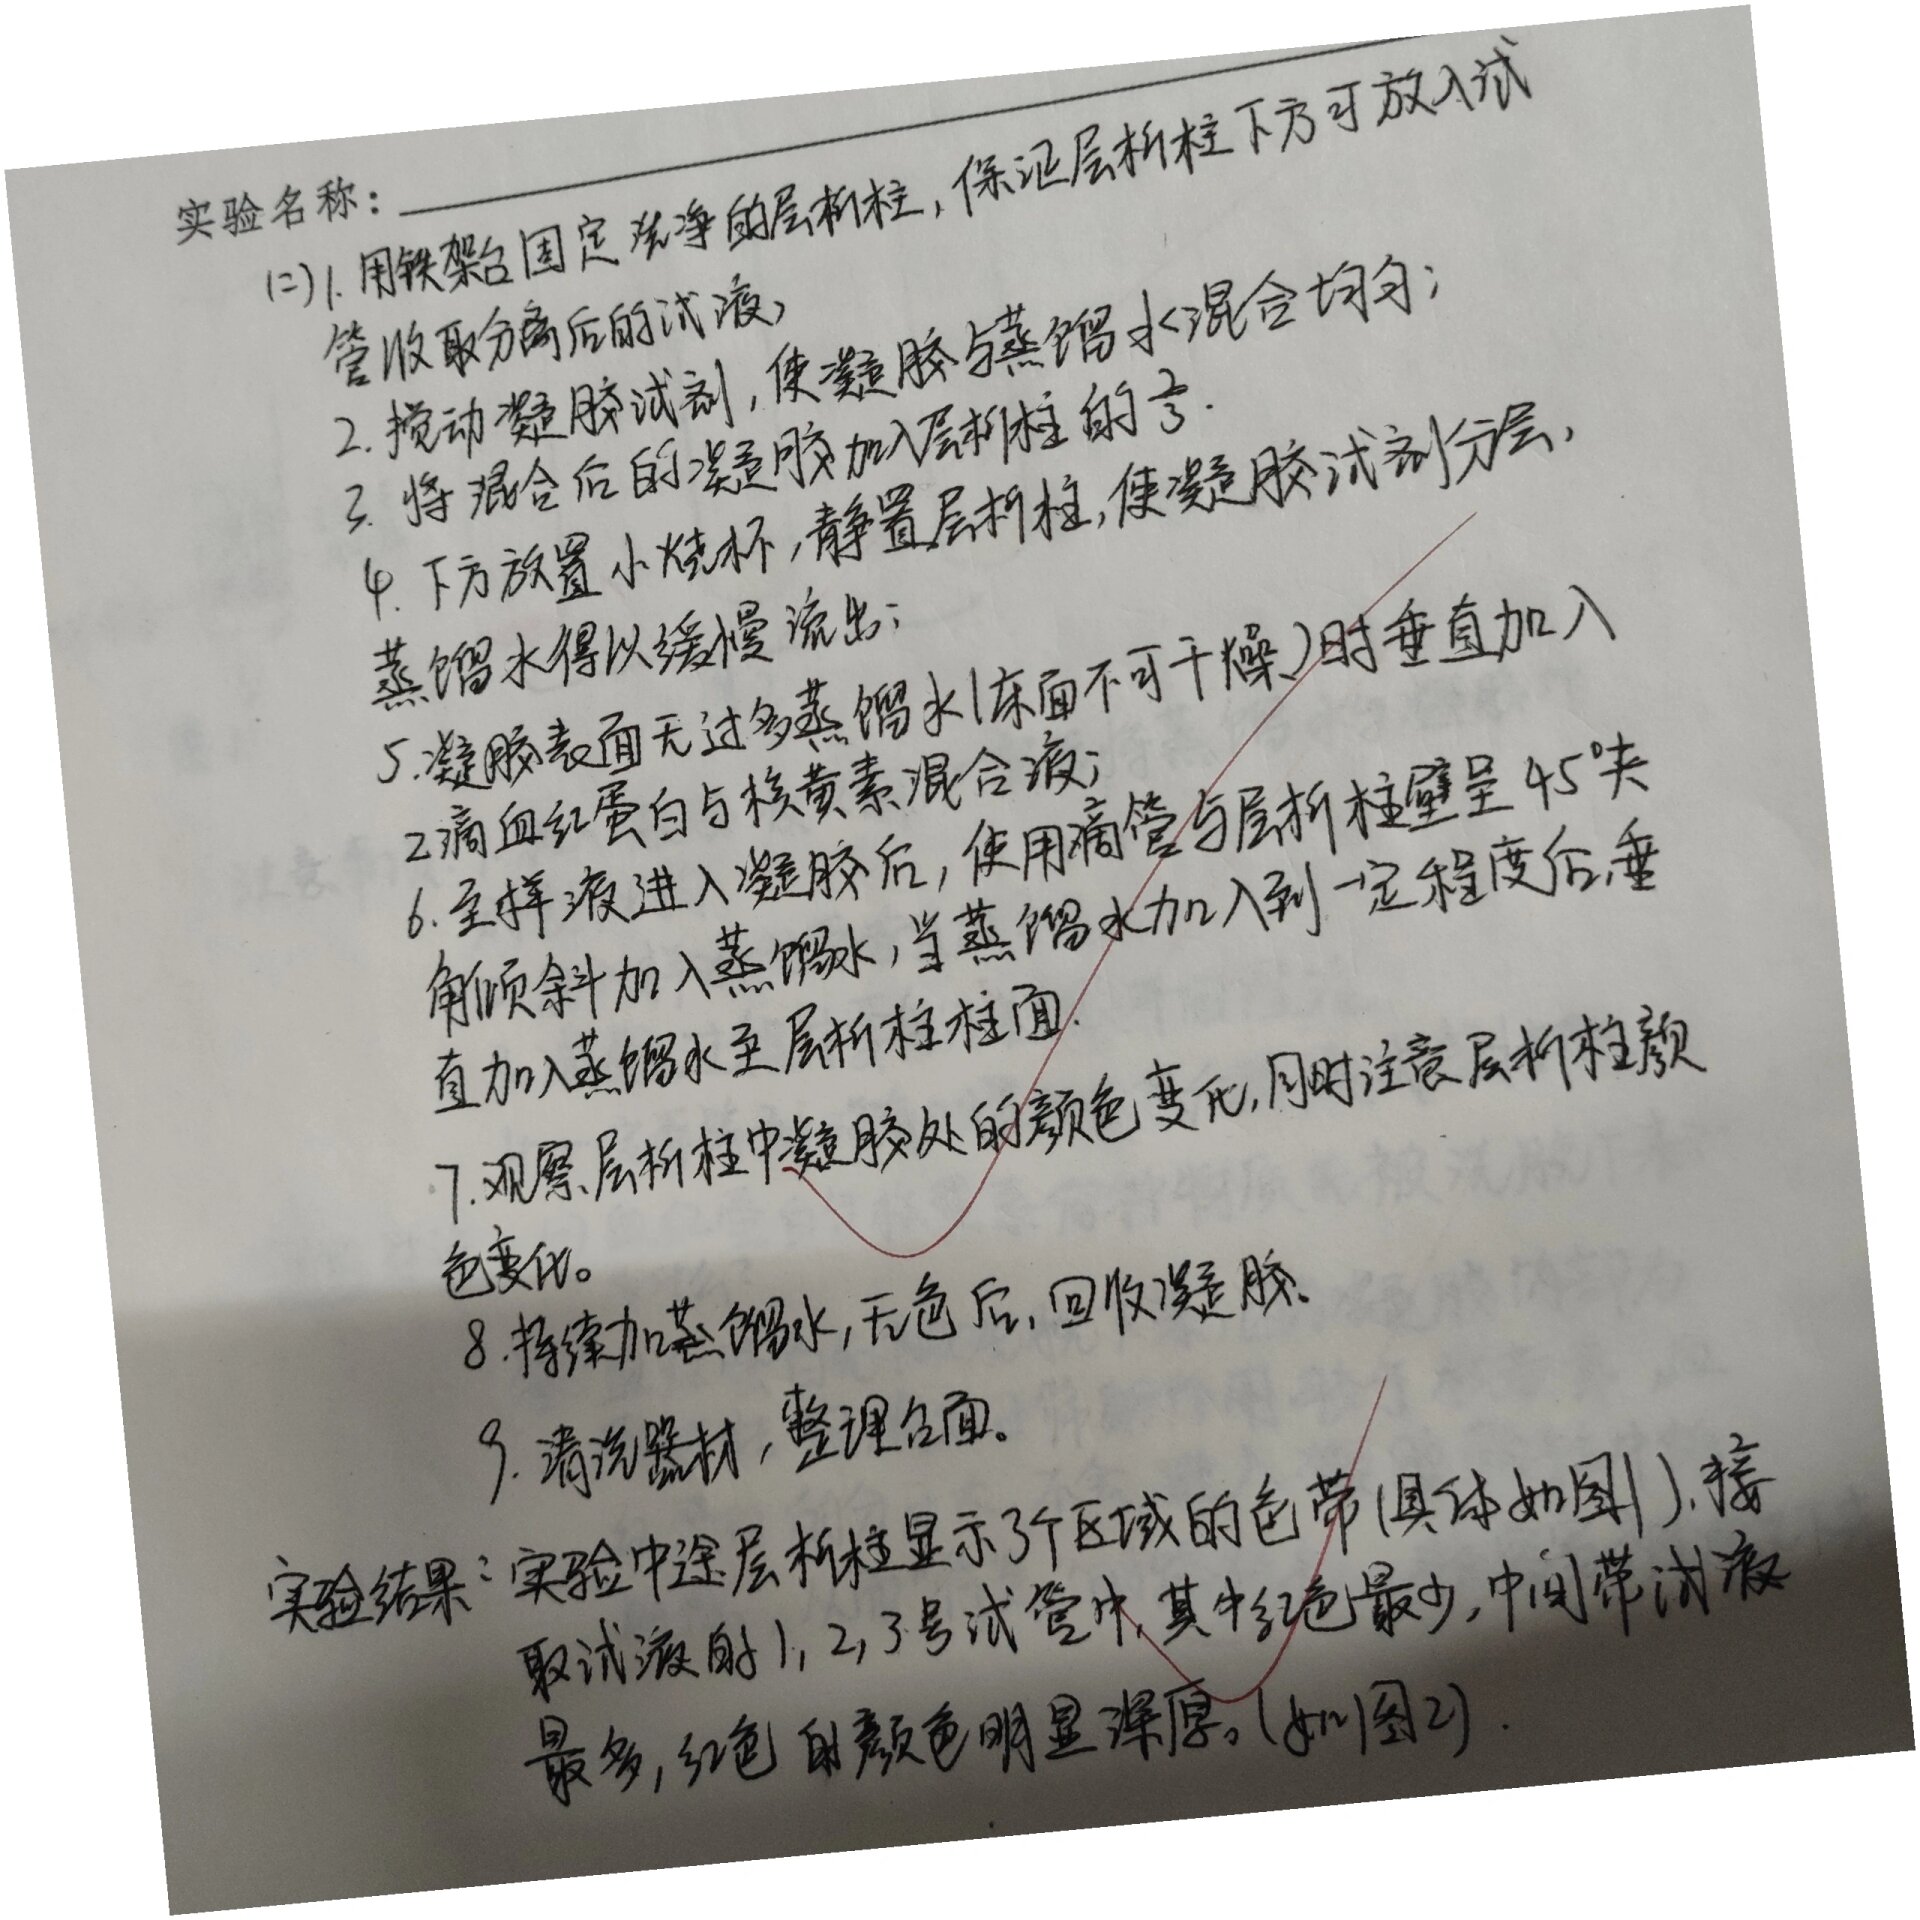 实验名称：
(二) 1. 用铁架台固定洗净的层析柱，保证层析柱下方可放入试
管收取分离后的试液；
2. 搅动凝胶试剂，使凝胶与蒸馏水混合均匀；
3. 将混合后的凝胶加入层析柱的
4. 下方放置小烧杯，静置层析柱，使凝胶试剂分层，
蒸馏水得以缓慢流出；
5. 凝胶表面无过多蒸馏水（床面不可干燥）时垂直加入
2滴血红蛋白与核黄素混合液；
6. 至样液进入凝胶后，使用滴管与层析柱壁呈45°夹
角倾斜加入蒸馏水，当蒸馏水加入到一定程度后，垂
直加入蒸馏水至层析柱柱面.
7. 观察层析柱中凝胶处的颜色变化，同时注意层析柱颜
色变化。
8. 持续加蒸馏水，无色后，回收凝胶。
9. 清洗器材，整理台面。
实验结果：实验中途层析柱显示3个区域的色带（具体如图1），接
取试液的1，2，3号试管中，其中红色最少，中间带试液
最多，红色的颜色明显深厚。（如图2）.